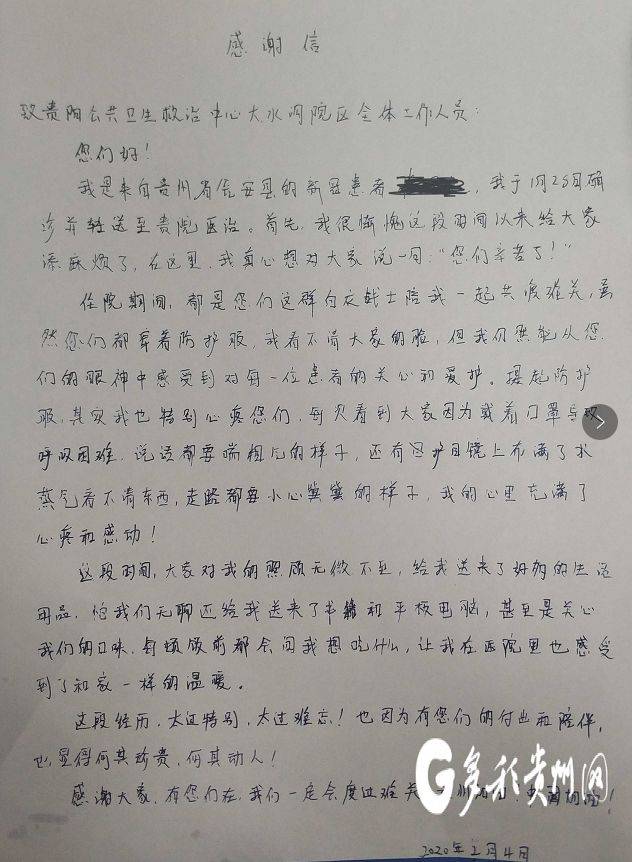 感谢信
致贵阳公共卫生救治中心大水沟院区全体工作人员：
您们好！
我是来自贵州省瓮安县的新冠患者，我于1月28日确
诊并转送至贵院医治。首先，我很惭愧这段时间以来给大家
添麻烦了，在这里，我真心想对大家说一句：“您们辛苦了！”
住院期间，都是您们这群白衣战士陪我一起共渡难关，虽
然您们都穿着防护服，我看不清大家的脸，但我仍然能从您
们的眼神中感受到对每一位患者的关心和爱护。提起防护
服，其实我也特别心疼您们，每次看到大家因为戴着口罩导致
呼吸困难，说话都要喘粗气的样子，还有护目镜上布满了水
蒸气看不清东西，走路都要小心翼翼的样子，我的心里充满了
心疼和感动！
这段时间，大家对我的照顾无微不至，给我送来了好多的生活
用品，怕我们无聊还给我送来了书籍和平板电脑，甚至是关心
我们的口味，每顿饭前都会问我想吃什么，让我在医院里也感受
到了和家一样的温暖。
这段经历，太过特别，太过难忘！也因为有您们的付出和陪伴，
也显得何其珍贵，何其动人！
感谢大家，有您们在，我们一定会度过难关，加油！
2020年2月4日
多彩贵州网